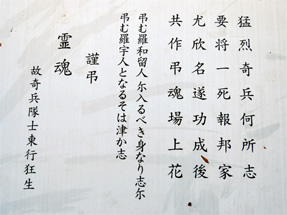 猛烈奇兵何所志
要将一死報邦家
尤欣名遂功成後
共作弔魂場上花
弔む羅和留人尓入るべき身なり志尓
弔む羅字人となるそは津か志
謹弔
霊魂
故奇兵隊士東行狂生